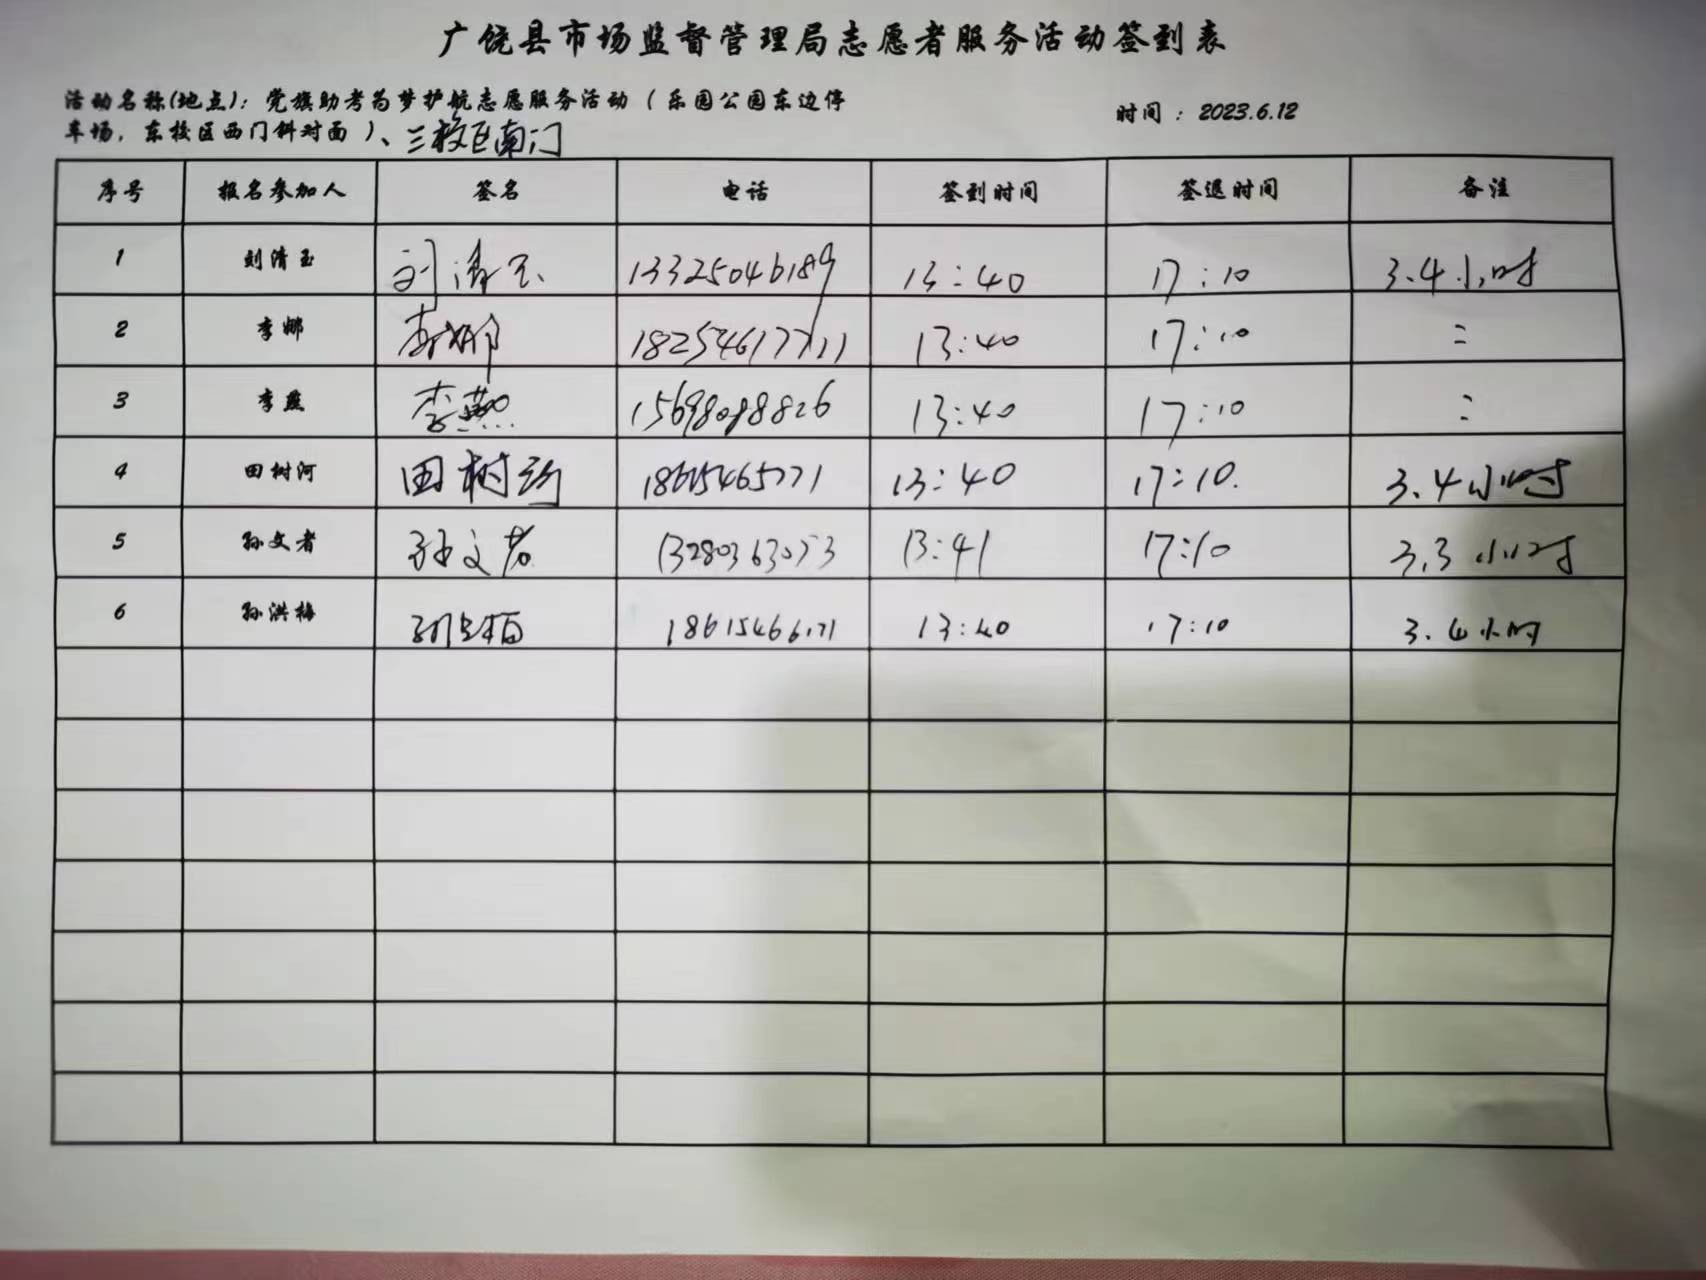 广饶县市场监督管理局志愿者服务活动签到表
活动名称(地点)：党旗助考为梦护航志愿服务活动（乐园公园东边停
车场，东校区西门斜对面）、三校区南门
时间：2023.6.12
序号 报名参加人 签名 电话 签到时间 签退时间 备注
1 刘清玉 刘清玉 13325046189 13:40 17:10 3.4小时
2 李娜 李娜 13:40 17:10 =
3 李燕 李燕 15698088826 13:40 17:10 =
4 田树河 田树河 18615465771 13:40 17:10. 3.4小时
5 孙文者 孙文者 13280363073 13:41 17:10 3.3小时
6 孙洪梅 孙洪梅 18615466171 13:40 17:10 3.4小时